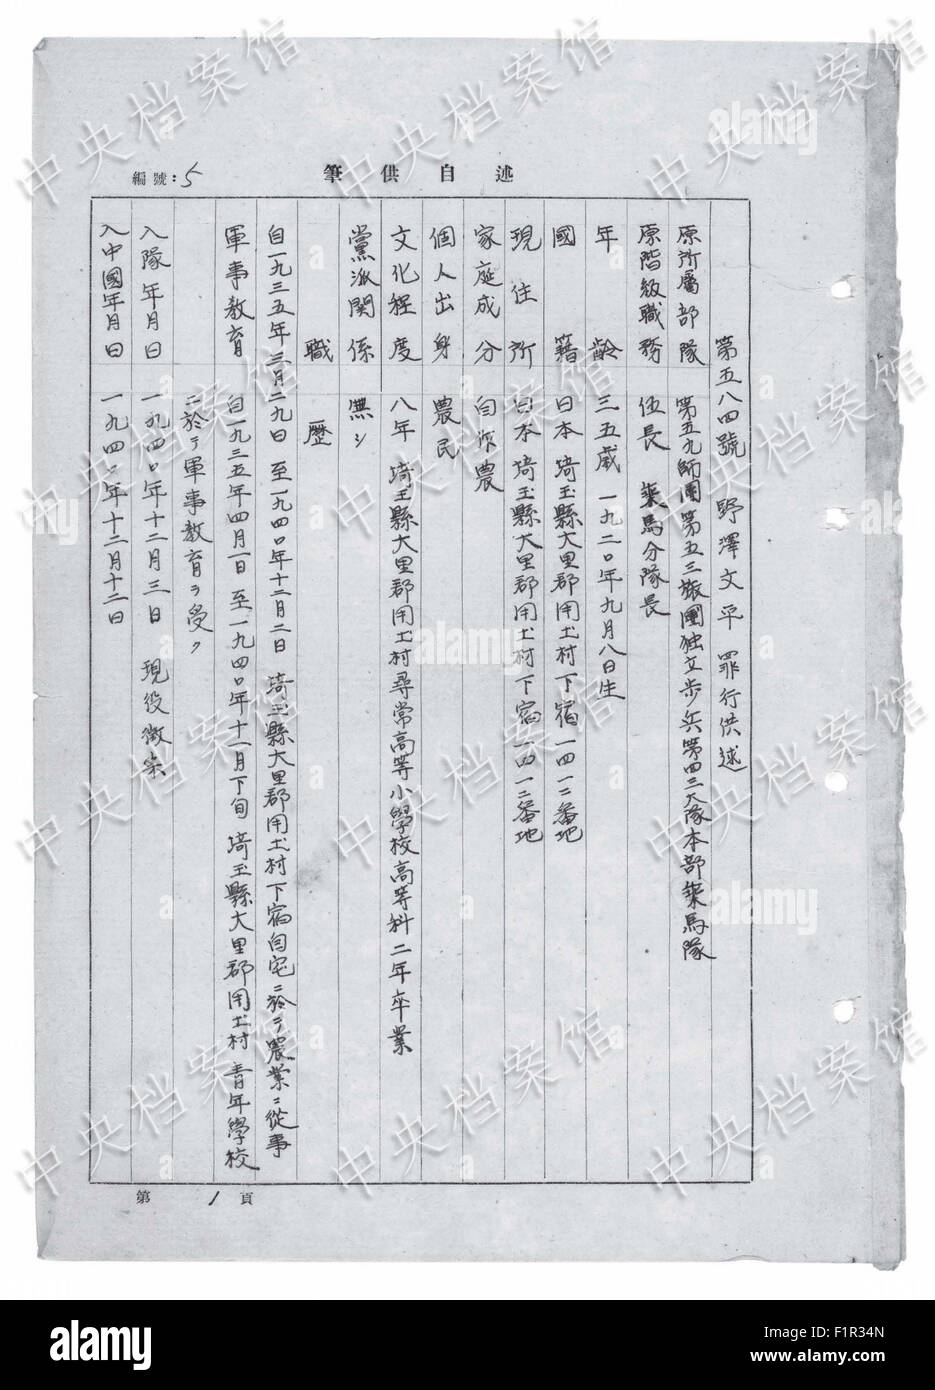 述自供筆
編號：5
第五八四號 野澤文平 罪行供述
原所屬部隊 第五九師團第五三旅團独立步兵第四三大隊本部乗馬隊
原階級職務 伍長 乗馬分隊長
年齡 三五歳 一九二〇年九月八日生
國籍 日本 埼玉縣大里郡用土村下宿一四一二番地
現住所 日本 埼玉縣大里郡用土村下宿一四一二番地
家庭成分 自作農
個人出身 農民
文化程度 八年 埼玉縣大里郡用土村尋常高等小學校高等科二年卒業
黨派関係 無シ
職歷
自一九三五年三月二九日 至一九四〇年十二月二日 埼玉縣大里郡用土村下宿自宅ニ於テ農業ニ従事
軍事教育 自一九三五年四月一日 至一九四〇年十一月下旬 埼玉縣大里郡用土村 青年學校
ニ於テ軍事教育ヲ受ク
入隊年月日 一九四〇年十二月三日 現役徴集
入中國年月日 一九四〇年十二月十二日
第 1 頁
中央档案馆
alamy
alamy
Image ID: F1R34N
www.alamy.com